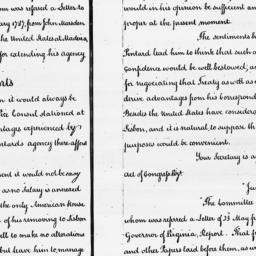 nn was refered a Letter to
ary 1787, from John Marsden
the United States at Madeira,
for extending his agency
nts
n it would always be
Vice Consul stationed at
ntages experienced by
ntards agency there afford
ment it would not be easy
as no Salary is annexed
the only American House
of his removing to Lisbon
ell to make no alterations
but leave him to manage
would in his opinion be sufficient an
proper at the present moment.
The sentiments h
Pintard lead him to think that such a
Confidence would be well bestowed; a
for negociating that Treaty as well as
derive advantages from his Correspond
Besides the United States have considera
Lisbon, and it is natural to suppose th
purposes would be convenient.
Your Secretary is a
Act of Congress
The Committee
whom was refered a Letter of 13 May
Governor of Virginia, Report. That f
and other Papers laid before them, as u